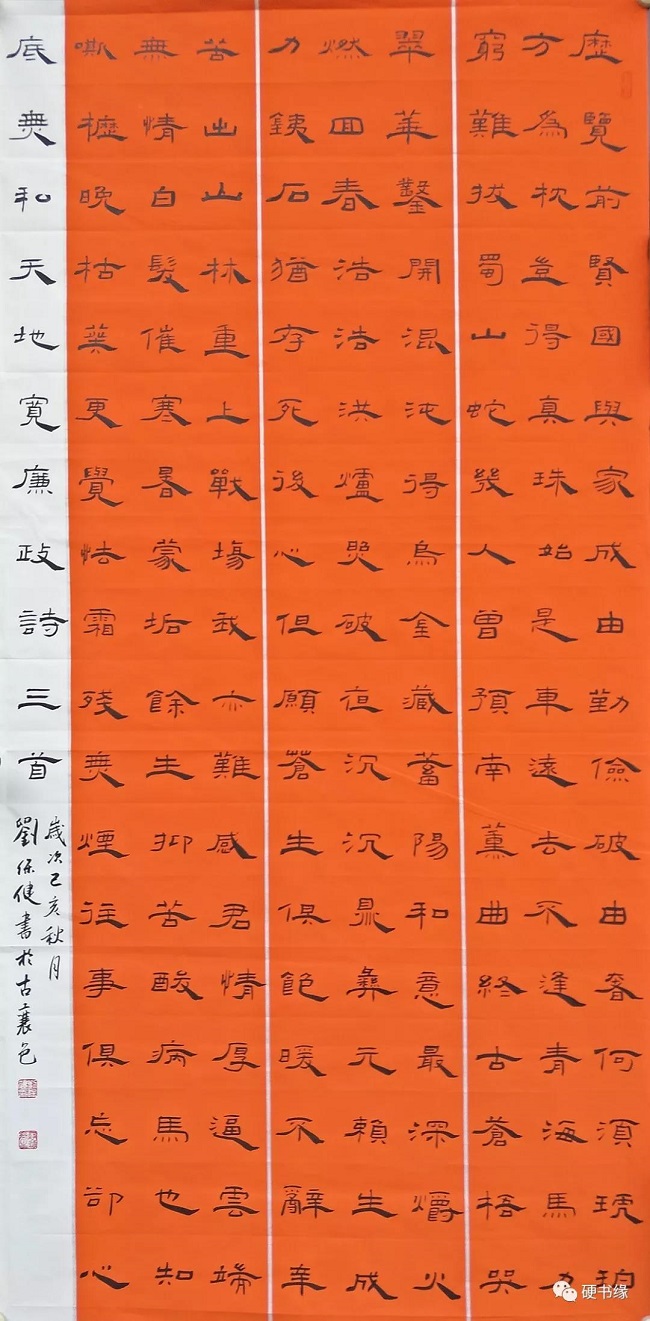 歷覽前賢國與家成由勤儉破由奢何須琥珀
方為枕豈得真珠始是車遠去不逢青海馬力
窮難拔蜀山蛇幾人曾預南薰曲終古蒼梧哭
翠華鑿開混沌得烏金藏蓄陽和意最深爝火
燃囬春浩浩洪爐照破夜沉沉鼎彝元賴生成
力銕石猶存死後心但願蒼生俱飽暖不辭辛
苦出山林重上戰場我亦難感君情厚逼雲端
無情白髮催寒暑蒙垢餘生抑苦酸病馬也知
嘶櫪晚枯葉更覺怯霜殘無煙往事俱忘卻心
底無私天地寬廉政詩三首
歲次己亥秋月
劉保健書於古襄邑
硬书缘